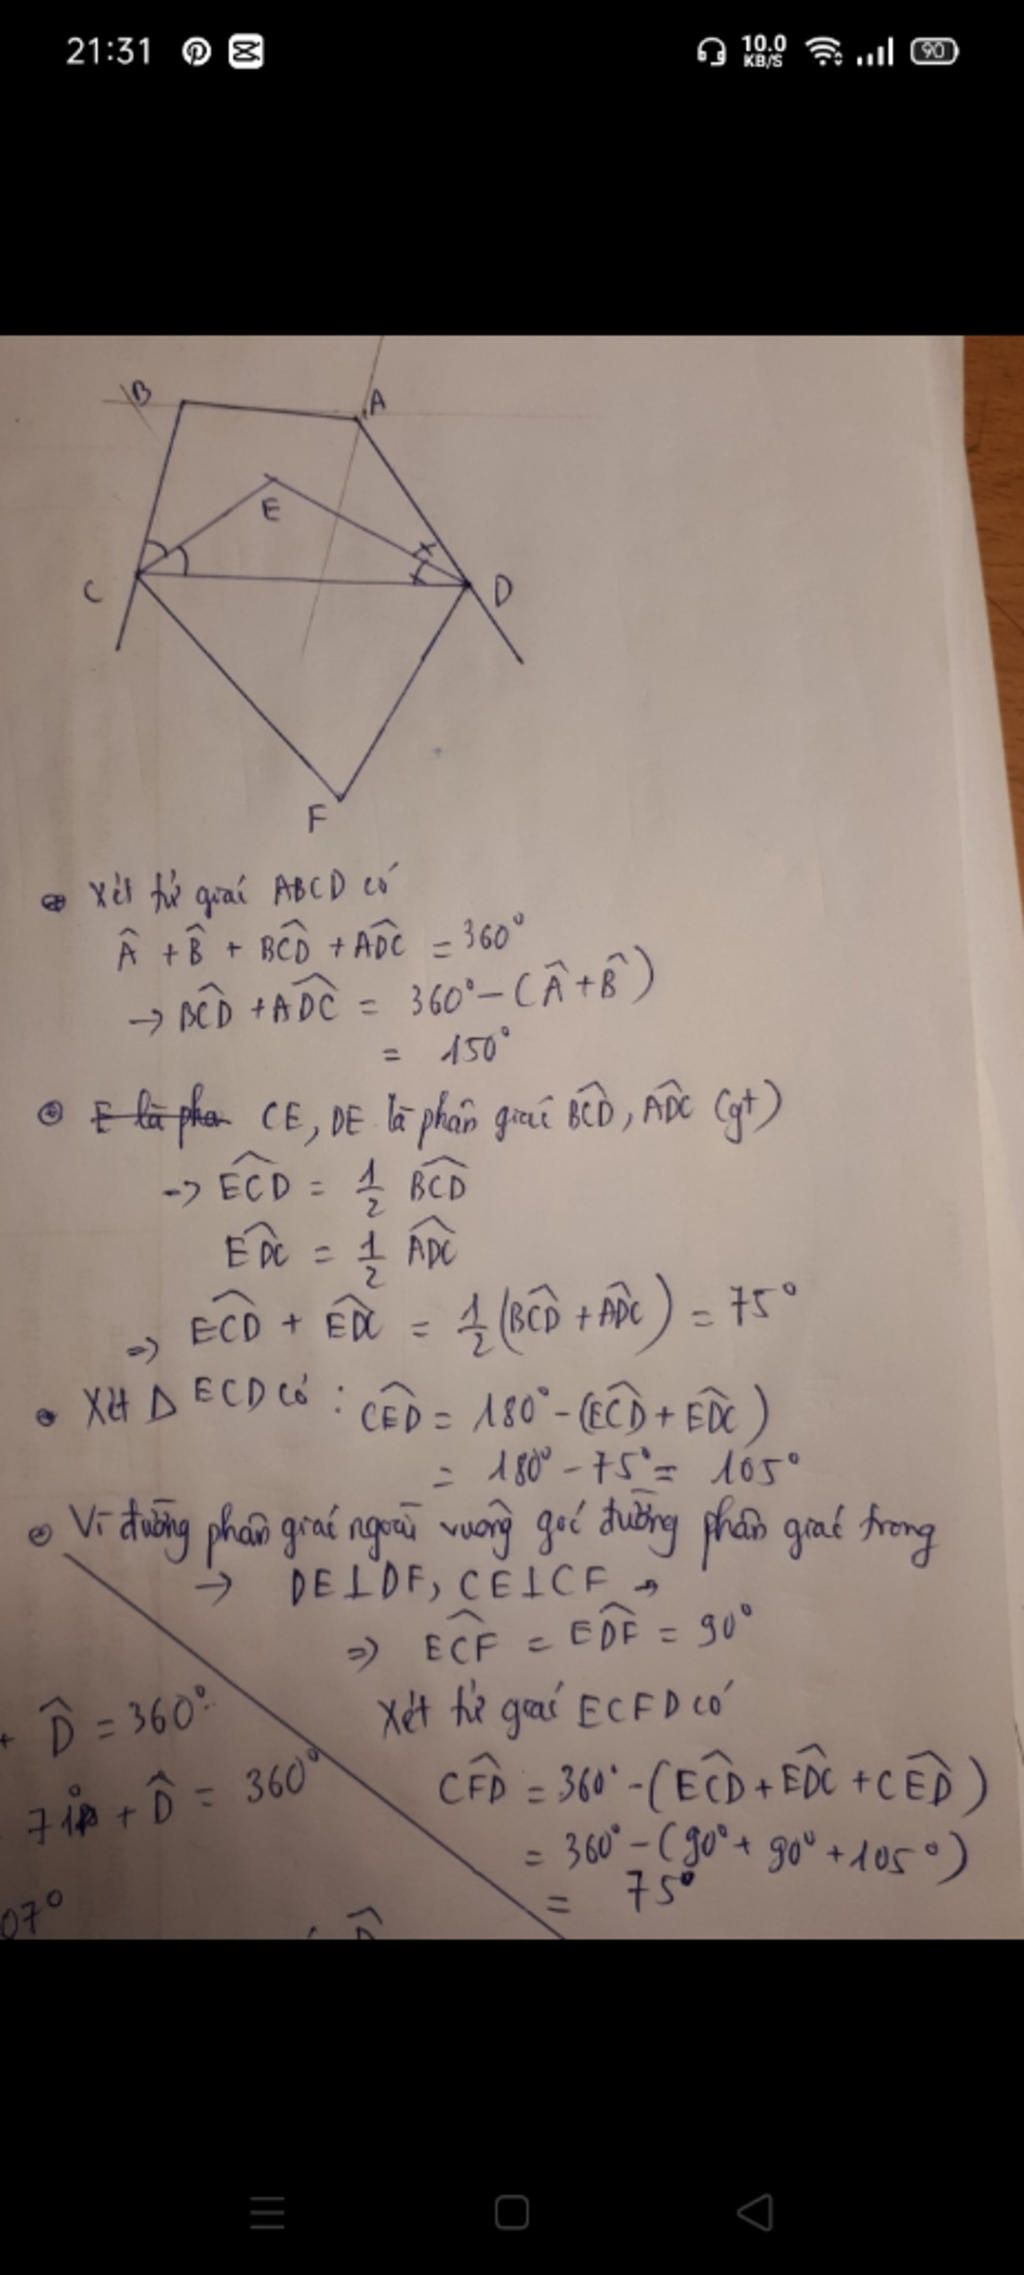 21:31
10.0
KB/S
90
B
A
E
C
D
F
Xét tứ giác ABCD có
Â + B̂ + BĈD + AD̂C = 360°
→ BĈD + AD̂C = 360° - (Â + B̂)
= 150°
E là pha CE, DE là phân giác BĈD, AD̂C (gt)
→ EĈD = 1/2 BĈD
ED̂C = 1/2 AD̂C
=> EĈD + ED̂C = 1/2 (BĈD + AD̂C) = 75°
Xét Δ ECD có : CÊD = 180° - (EĈD + ED̂C)
= 180° - 75° = 105°
Vì đường phân giác ngoài vuông góc đường phân giác trong
→ DE⊥DF, CE⊥CF
=> EĈF = ED̂F = 90°
Xét tứ giác ECFD có
CF̂D = 360° - (EĈD + ED̂C + CÊD)
= 360° - (90° + 90° + 105°)
= 75°
+ D̂ = 360°
+ D̂ = 360°
07°